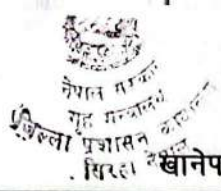 नेपाल सरकार
गृह मन्त्रालय
जिल्ला प्रशासन कार्यालय
सिरहा
खानेप